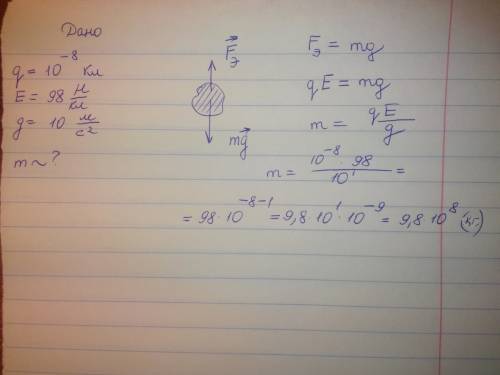 Дано
q = 10⁻⁸ Кл
E = 98 Н/Кл
g = 10 м/с²
m ~ ?
F⃗э
mg⃗
Fэ = mg
qE = mg
m = qE/g
m = 10⁻⁸ · 98 / 10¹ =
= 98 · 10⁻⁸⁻¹ = 9,8 · 10¹ · 10⁻⁹ = 9,8 · 10⁸ (кг)